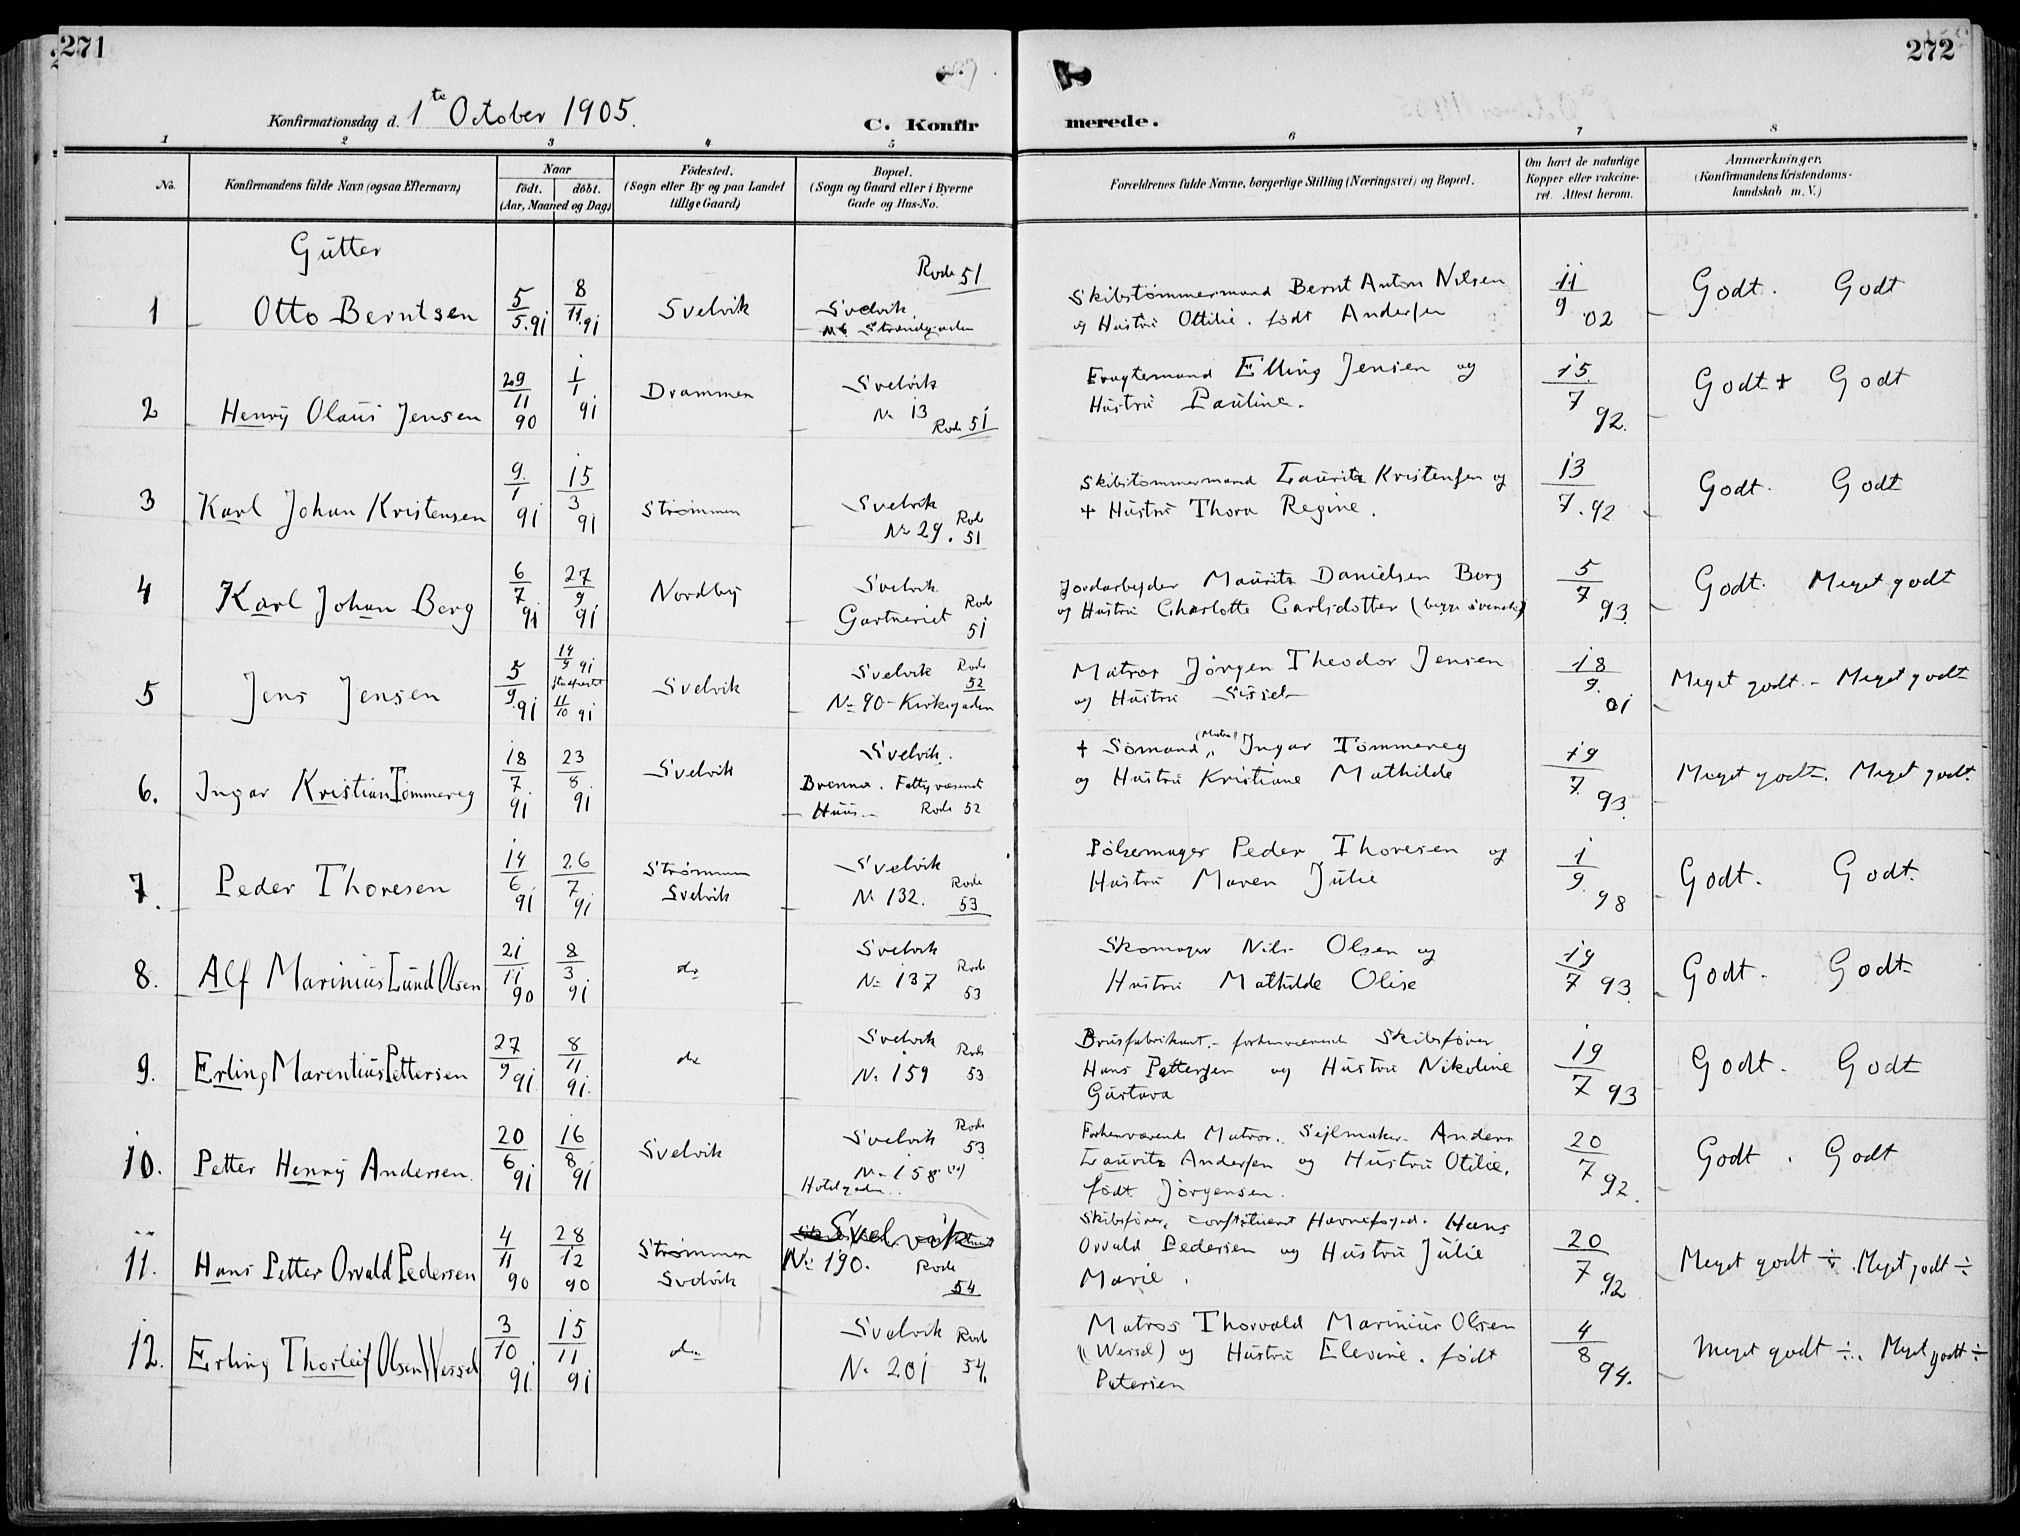 271
272
Konfirmationsdag d. 1te October 1905.
C. Konfir
merede.
1 2 3 4 5 6 7 8
No.
Konfirmandens fulde Navn (ogsaa Efternavn)
Naar
født. døbt.
(Aar, Maaned og Dag)
Fødested.
(Sogn eller By og paa Landet
tillige Gaard)
Bopæl.
(Sogn og Gaard eller i Byerne
Gade og Hus-No.
Forældrenes fulde Navne, borgerlige Stilling (Næringsvei) og Bopæl.
Om havt de naturlige
Kopper eller vakcine-
ret. Attest herom.
Anmærkninger,
(Konfirmandens Kristendoms-
kundskab m. V.)
Gutter
1 Otto Berntsen 5/5.91 8/11.91 Svelvik Rode 51
Svelvik
No 6 Strandgaden
Skibstømmermand Bernt Anton Nilsen
og Hustru Ottilie. født Andersen
11/9 02 Godt. Godt
2 Henry Olaus Jensen 29/11 90 1/1 91 Drammen Svelvik
No 13 Rode 51
Fragtemand Elling Jensen og
Hustru Pauline.
15/7 92. Godt + Godt
3 Karl Johan Kristensen 9/1 91 15/3 91 Strømmen Svelvik
No 29. Rode 51
Skibstømmermand Lauritz Kristensen og
+ Hustru Thora Regine.
13/7.92 Godt. Godt
4 Karl Johan Berg 6/7 91 27/9 91 Nordby Svelvik
Gartneriet Rode 51
Jordarbejder Mauritz Danielsen Berg
og Hustru Charlotte Carlsdotter (begge svenske)
5/7 93. Godt. Meget godt
5 Jens Jensen 5/9.91 14/9 91
11/10 91 Svelvik Svelvik Rode 52
No 90 - Kirkegaden
Matros Jørgen Theodor Jensen
og Hustru Sissel
18/9. 01 Meget godt. - Meget godt
6. Ingar Kristian Tømmereg 18/7 91 23/8 91 Svelvik Svelvik.
Brenna. Fattigvæsenets
Huus - Rode 52
+ Sømand (Matros) Ingar Tømmereg
og Hustru Kristiane Mathilde
19/7 93. Meget godt. Meget godt.
7. Peder Thoresen 14/6 91 26/7 91 Strømmen
Svelvik Svelvik
No 132. Rode 53
Pølsemager Peder Thoresen og
Hustru Maren Julie
1/9. 98 Godt. Godt.
8. Alf Marinius Lund Olsen 21/11 90 8/3 91 do Svelvik
No 137 Rode 53
Skomager Nils Olsen og
Hustru Mathilde Olise
19/7 93. Godt. Godt
9. Erling Marentius Pettersen 27/9 91 8/11 91. do Svelvik
No 159 Rode 53
Brusfabrikant. - forhenværende Skibsfører
Hans Pettersen og Hustru Nikoline
Gustava
19/7 93 Godt. Godt
10. Petter Henry Andersen. 20/6 91 16/8 91 Svelvik Svelvik Rode 53
No 158
Hotelgaden..
Forhenværende Matros. Sejlmaker. Anders
Lauritz Andersen og Hustru Otilie.
født Jørgensen.
20/7 92. Godt. Godt
11. Hans Petter Orvald Pedersen 4/11 90 28/12 90 Strømmen
Svelvik Svelvik
No 190. Rode 54
Skibsfører, constitueret Havnefoged. Hans
Orvald Pedersen og Hustru Julie
Marie.
20/7 92 Meget godt ÷. Meget godt ÷
12. Erling Thorleif Olsen Wessel 3/10 91. 15/11 91 do Svelvik
No 201 Rode 54.
Matros Thorvald Marinius Olsen
(Wessel) og Hustru Elevine. født
Petersen
4/8 94. Meget godt ÷. Meget godt ÷